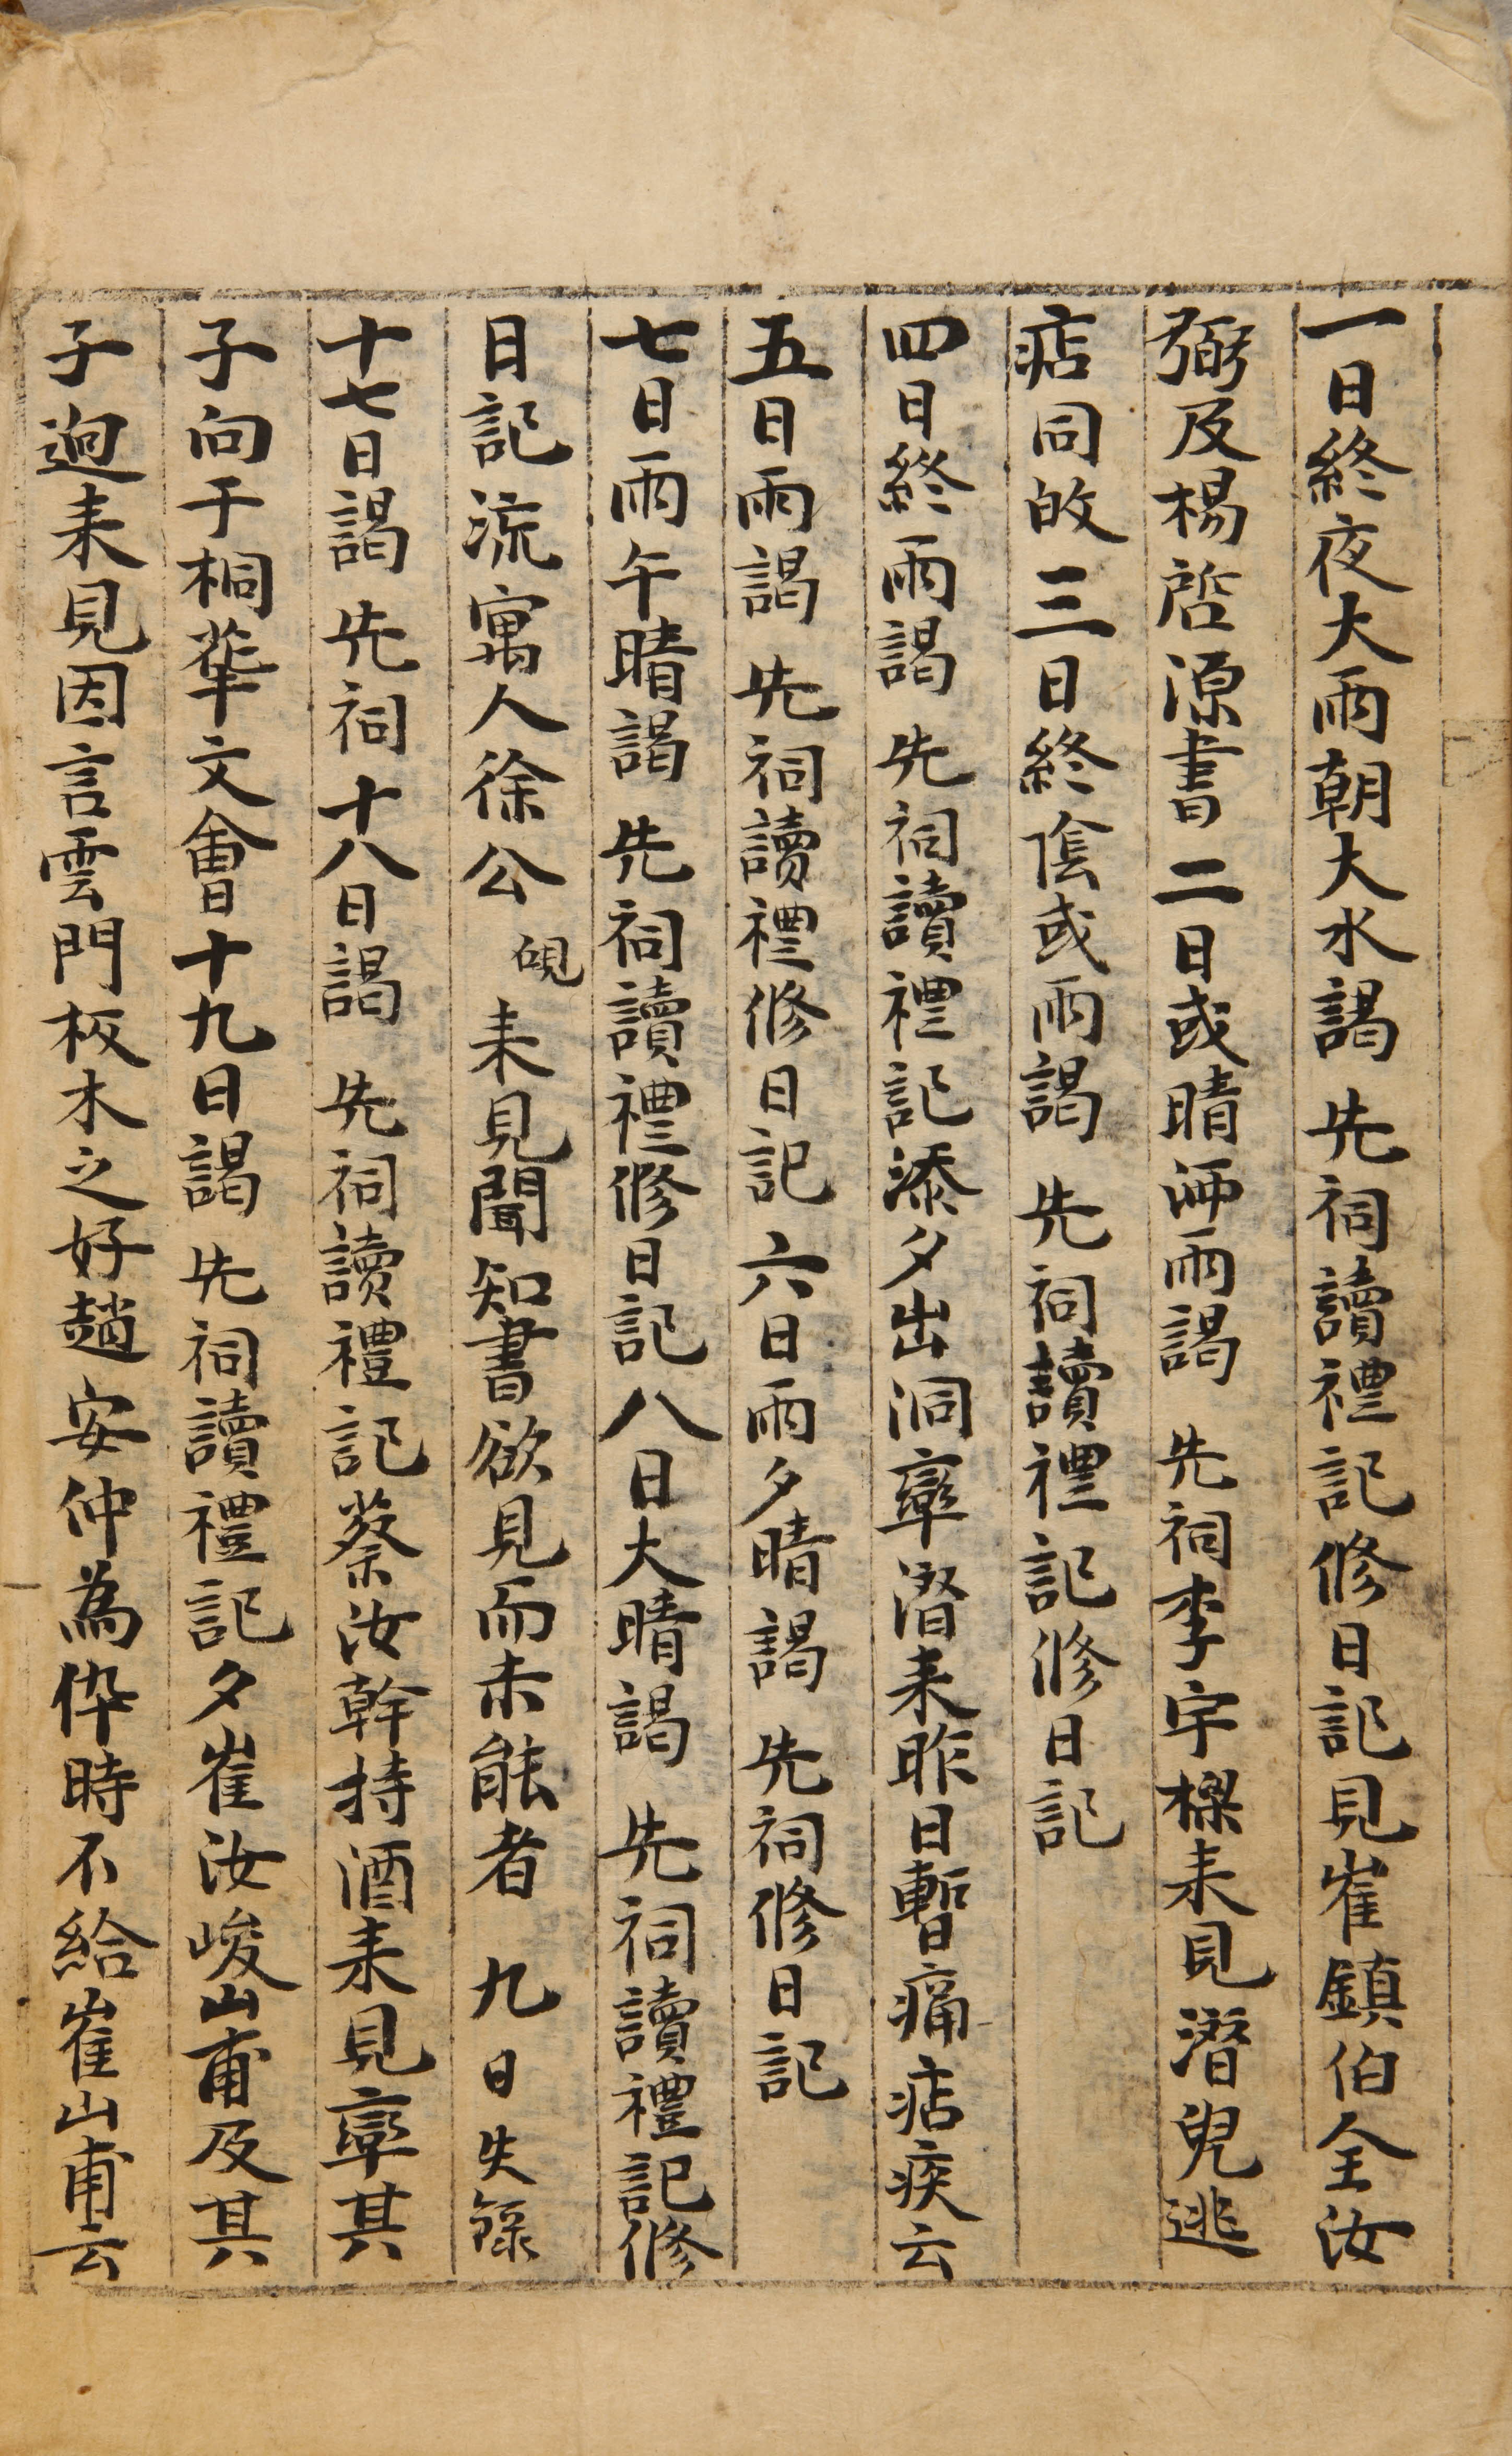 一日終夜大雨朝大水謁 先祠讀禮記修日記見崔鎮伯全汝
弼及楊啓源書二日或晴洒雨謁 先祠李宇樑来見潛兒逃
痁同故三日終陰或雨謁 先祠讀禮記修日記
四日終雨謁 先祠讀禮記添夕出洞 潛来昨日暫痛痁疾云
五日雨謁 先祠讀禮修日記六日雨夕晴謁 先祠修日記
七日雨午晴謁 先祠讀禮修日記八日大晴謁 先祠讀禮記修
日記流寓人徐公 来見聞知書欲見而未能者 九日失錄
十七日謁 先祠十八日謁 先祠讀禮記蔡汝幹持酒来見 其
子向于桐華文會十九日謁 先祠讀禮記夕崔汝峻山甫及其
子 来見因言雲門板木之好趙 安仲為倅時不給崔山甫云